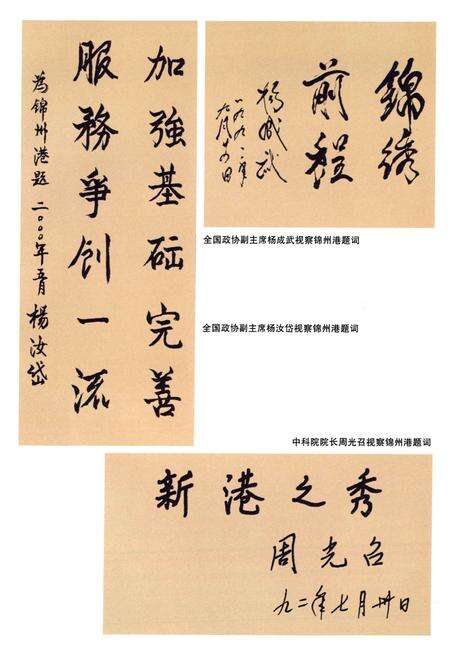 加強基础完善
服務爭创一流
為锦州港題 二〇〇〇年 楊汝岱
錦绣
前程
楊成武
全国政协副主席杨成武视察锦州港题词
全国政协副主席杨汝岱视察锦州港题词
中科院院长周光召视察锦州港题词
新港之秀
周光召
九二年七月卅日